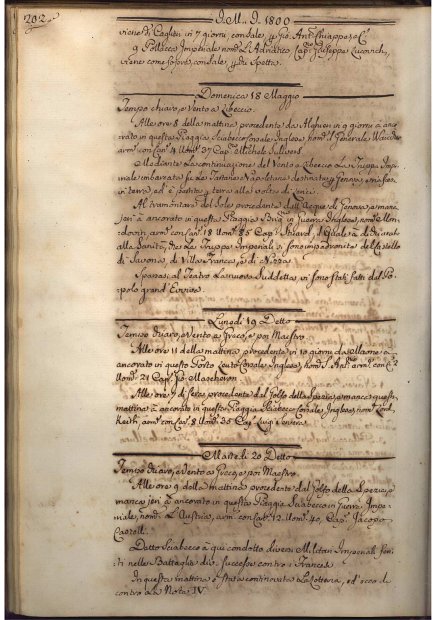 202.
J. M. J. 1800
viene di Cagliari in 7 giorni, con sale, e Gio. Ant. Chiappe, e C.
9 Pollacca Imperiale nom. L'Adriatico Cap. Giuseppe
viene come sopra, con sale, e
Domenica 18 Maggio
Tempo chiaro, e Vento a Libeccio
Alle ore 8 della mattina procedente da in 9 giorni è anc
orato in questa Piaggia Sciabecco Corsale Inglese nom. Generale
arm. con Can. 4 Uom. 37 Cap. Michele
Mediante la continuazione del Vento a Libeccio la Truppa Impe
riale imbarcata su le Tartane Napoletane destinata p Genova,
in terra, ed è partita p terra alla volta di
Al tramontar del Sole procedente dall'Acque di Genova, e manca
jeri è ancorato in questa Piaggia Brig. in Guerra Inglese, nom.
con Can. 18 Uom. 85 Cap. il quale ha dichiarato
alla Sanità, che Le Truppe Imperiali si sono impadronite del Castello
di Savona, di Villa Franca, e di Nizza.
al Teatro La nuova Suddetta, vi sono stati fatti dal Po
polo grand' Evviva.
Lunedì 19 Detto
Tempo chiaro, e Vento a Greco, e poi Maestro
Alle ore 11 della mattina procedente in 10 giorni da Maone è
ancorato in questo Porto Cutter Corsale Inglese, nom. arm. con C. 2
Uom. 21 Cap.
Alle ore 7 di sera procedente dal Golfo della Spezia, e manca questa
mattina è ancorato in questa Piaggia Sciabecco Corsale Inglese, nom. Lord
Keith arm. con Can. 8 Uom. 35 Cap. Luigi
Martedì 20 Detto
Tempo chiaro, e Vento a Greco, e poi Maestro
Alle ore 9 della mattina procedente dal Golfo della Spezia, e
manca jeri è ancorato in questa Piaggia Sciabecco in Guerra Impe
riale, nom. L'Austria, arm. con Can. 12. Uom. 40, Cap. Jacopo
Castoll.
Detto Sciabecco à qui condotto diversi Militari Imperiali feri
ti nelle Battaglie di successo contro i Francesi
In questa mattina è stata continovata La Lotteria, ed' ecco di
contro La Nota IV.